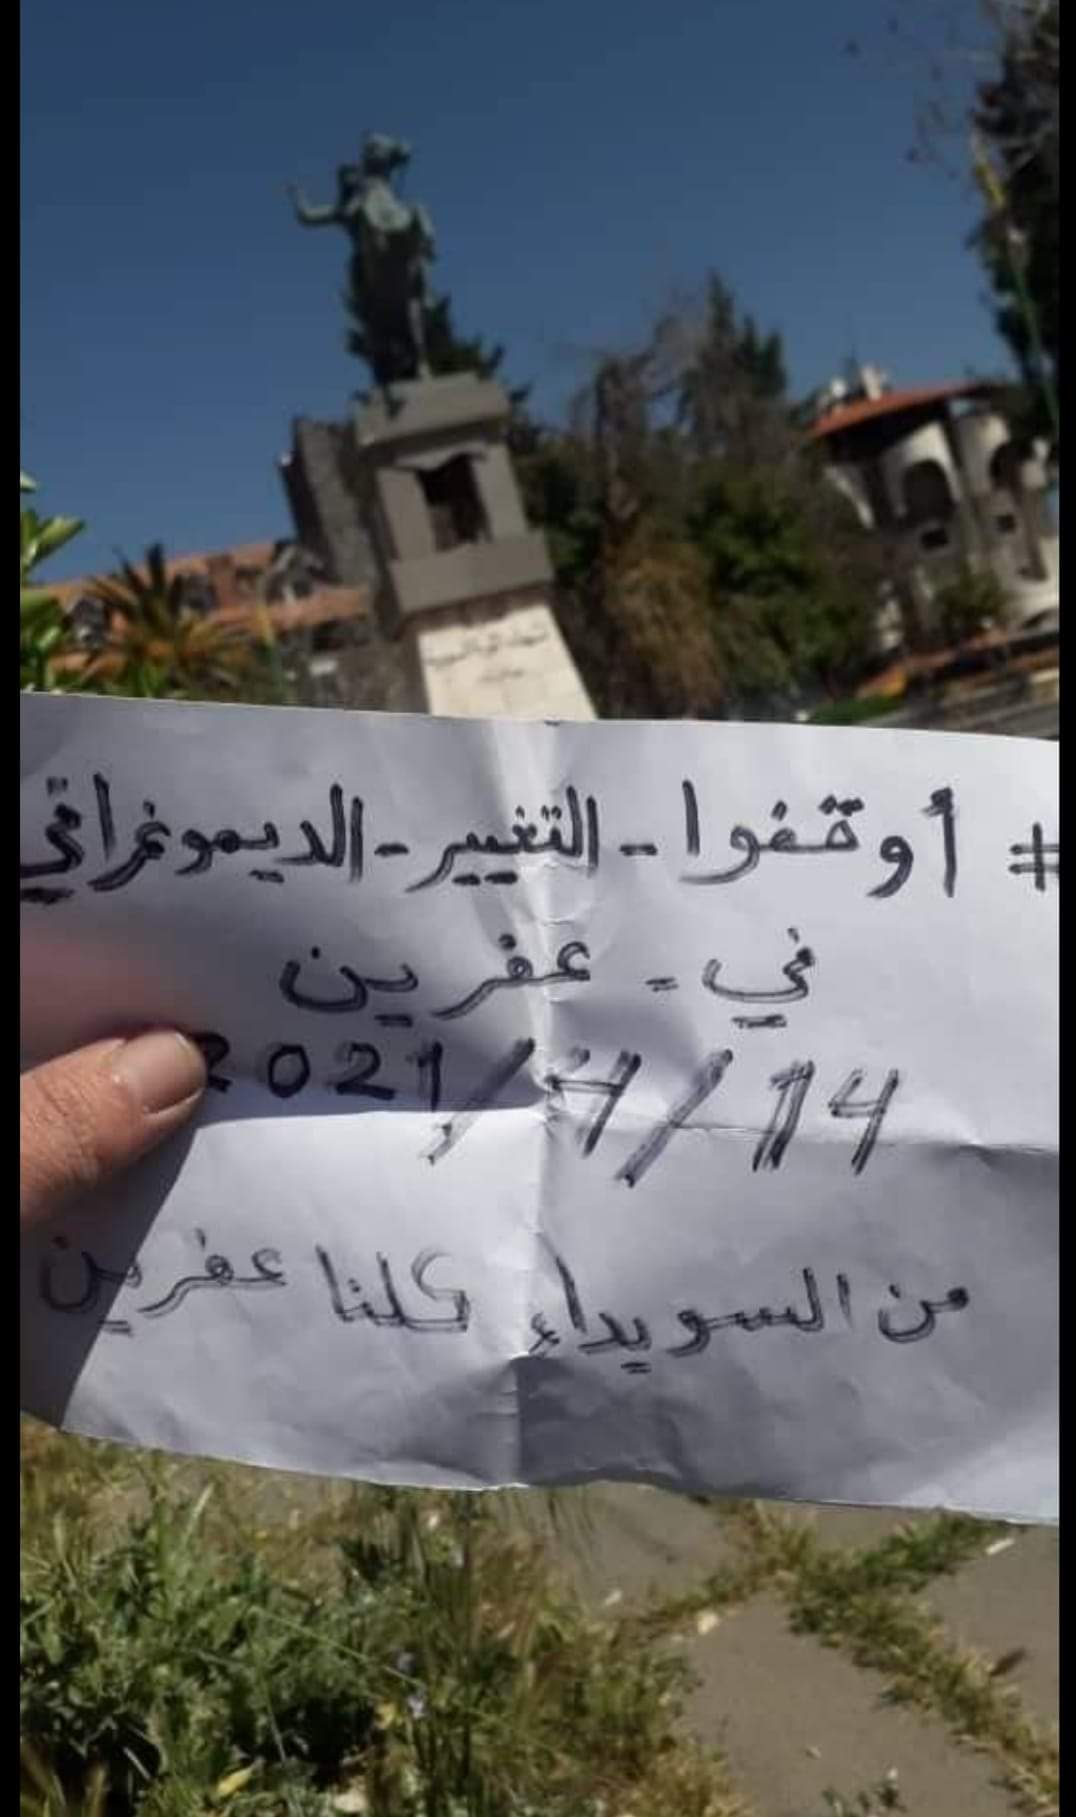 # أوقفوا - التغيير - الديموغرافي
في - عفرين
2021/4/14
من السويداء كلنا عفرين